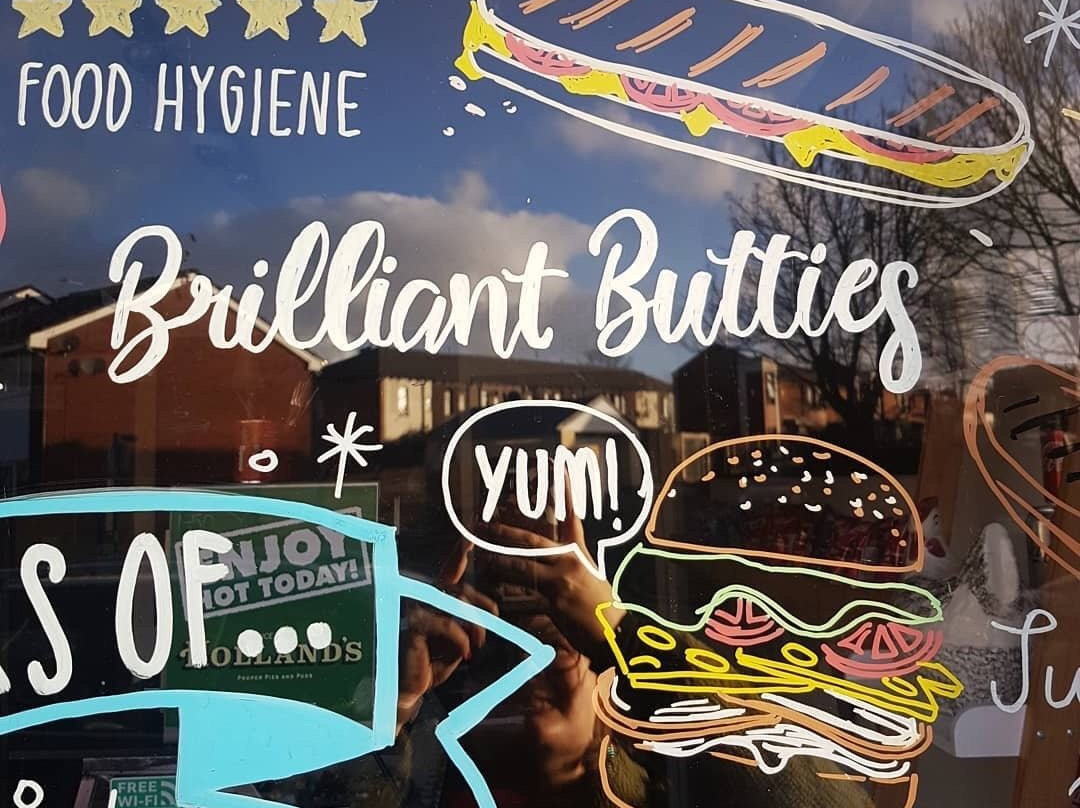 FOOD HYGIENE
Brilliant Butties
YUM!
S OF...
ENJOY
HOT TODAY!
HOLLAND'S
PROPER PIES AND PUDS
Ju
FREE
WI-FI